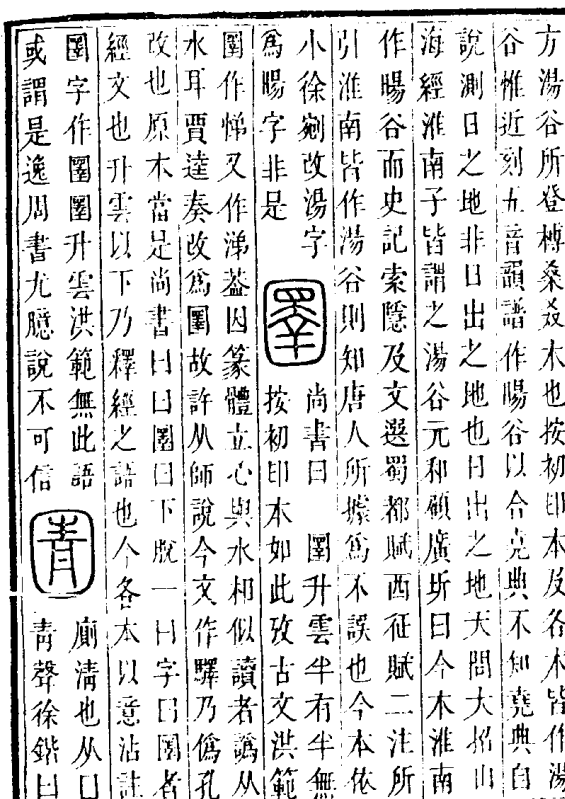 方湯谷所登榑桑叒木也按初印本及各本皆作湯
谷惟近刻五音韻譜作暘谷以合堯典不知堯典自
說測日之地非日出之地也日出之地天問大招山
海經淮南子皆謂之湯谷元和顧廣圻曰今本淮南
作暘谷而史記索隱及文選蜀都賦西征賦二注所
引淮南皆作湯谷則知唐人所據爲不誤也今本依
小徐剜改湯字
爲暘字非是
圛
尚書曰 圛升雲半有半無
按初印本如此攷古文洪範
圛作悌又作涕蓋因篆體立心與水相似讀者譌从
水耳賈逵奏改爲圛故許从師說今文作驛乃僞孔
改也原本當是尚書曰曰圛曰下脫一曰字曰圛者
經文也升雲以下乃釋經之語也今各本以意沾註
圛字作圛圛升雲洪範無此語
或謂是逸周書尤臆說不可信
圊
廁清也从囗
青聲徐鍇曰